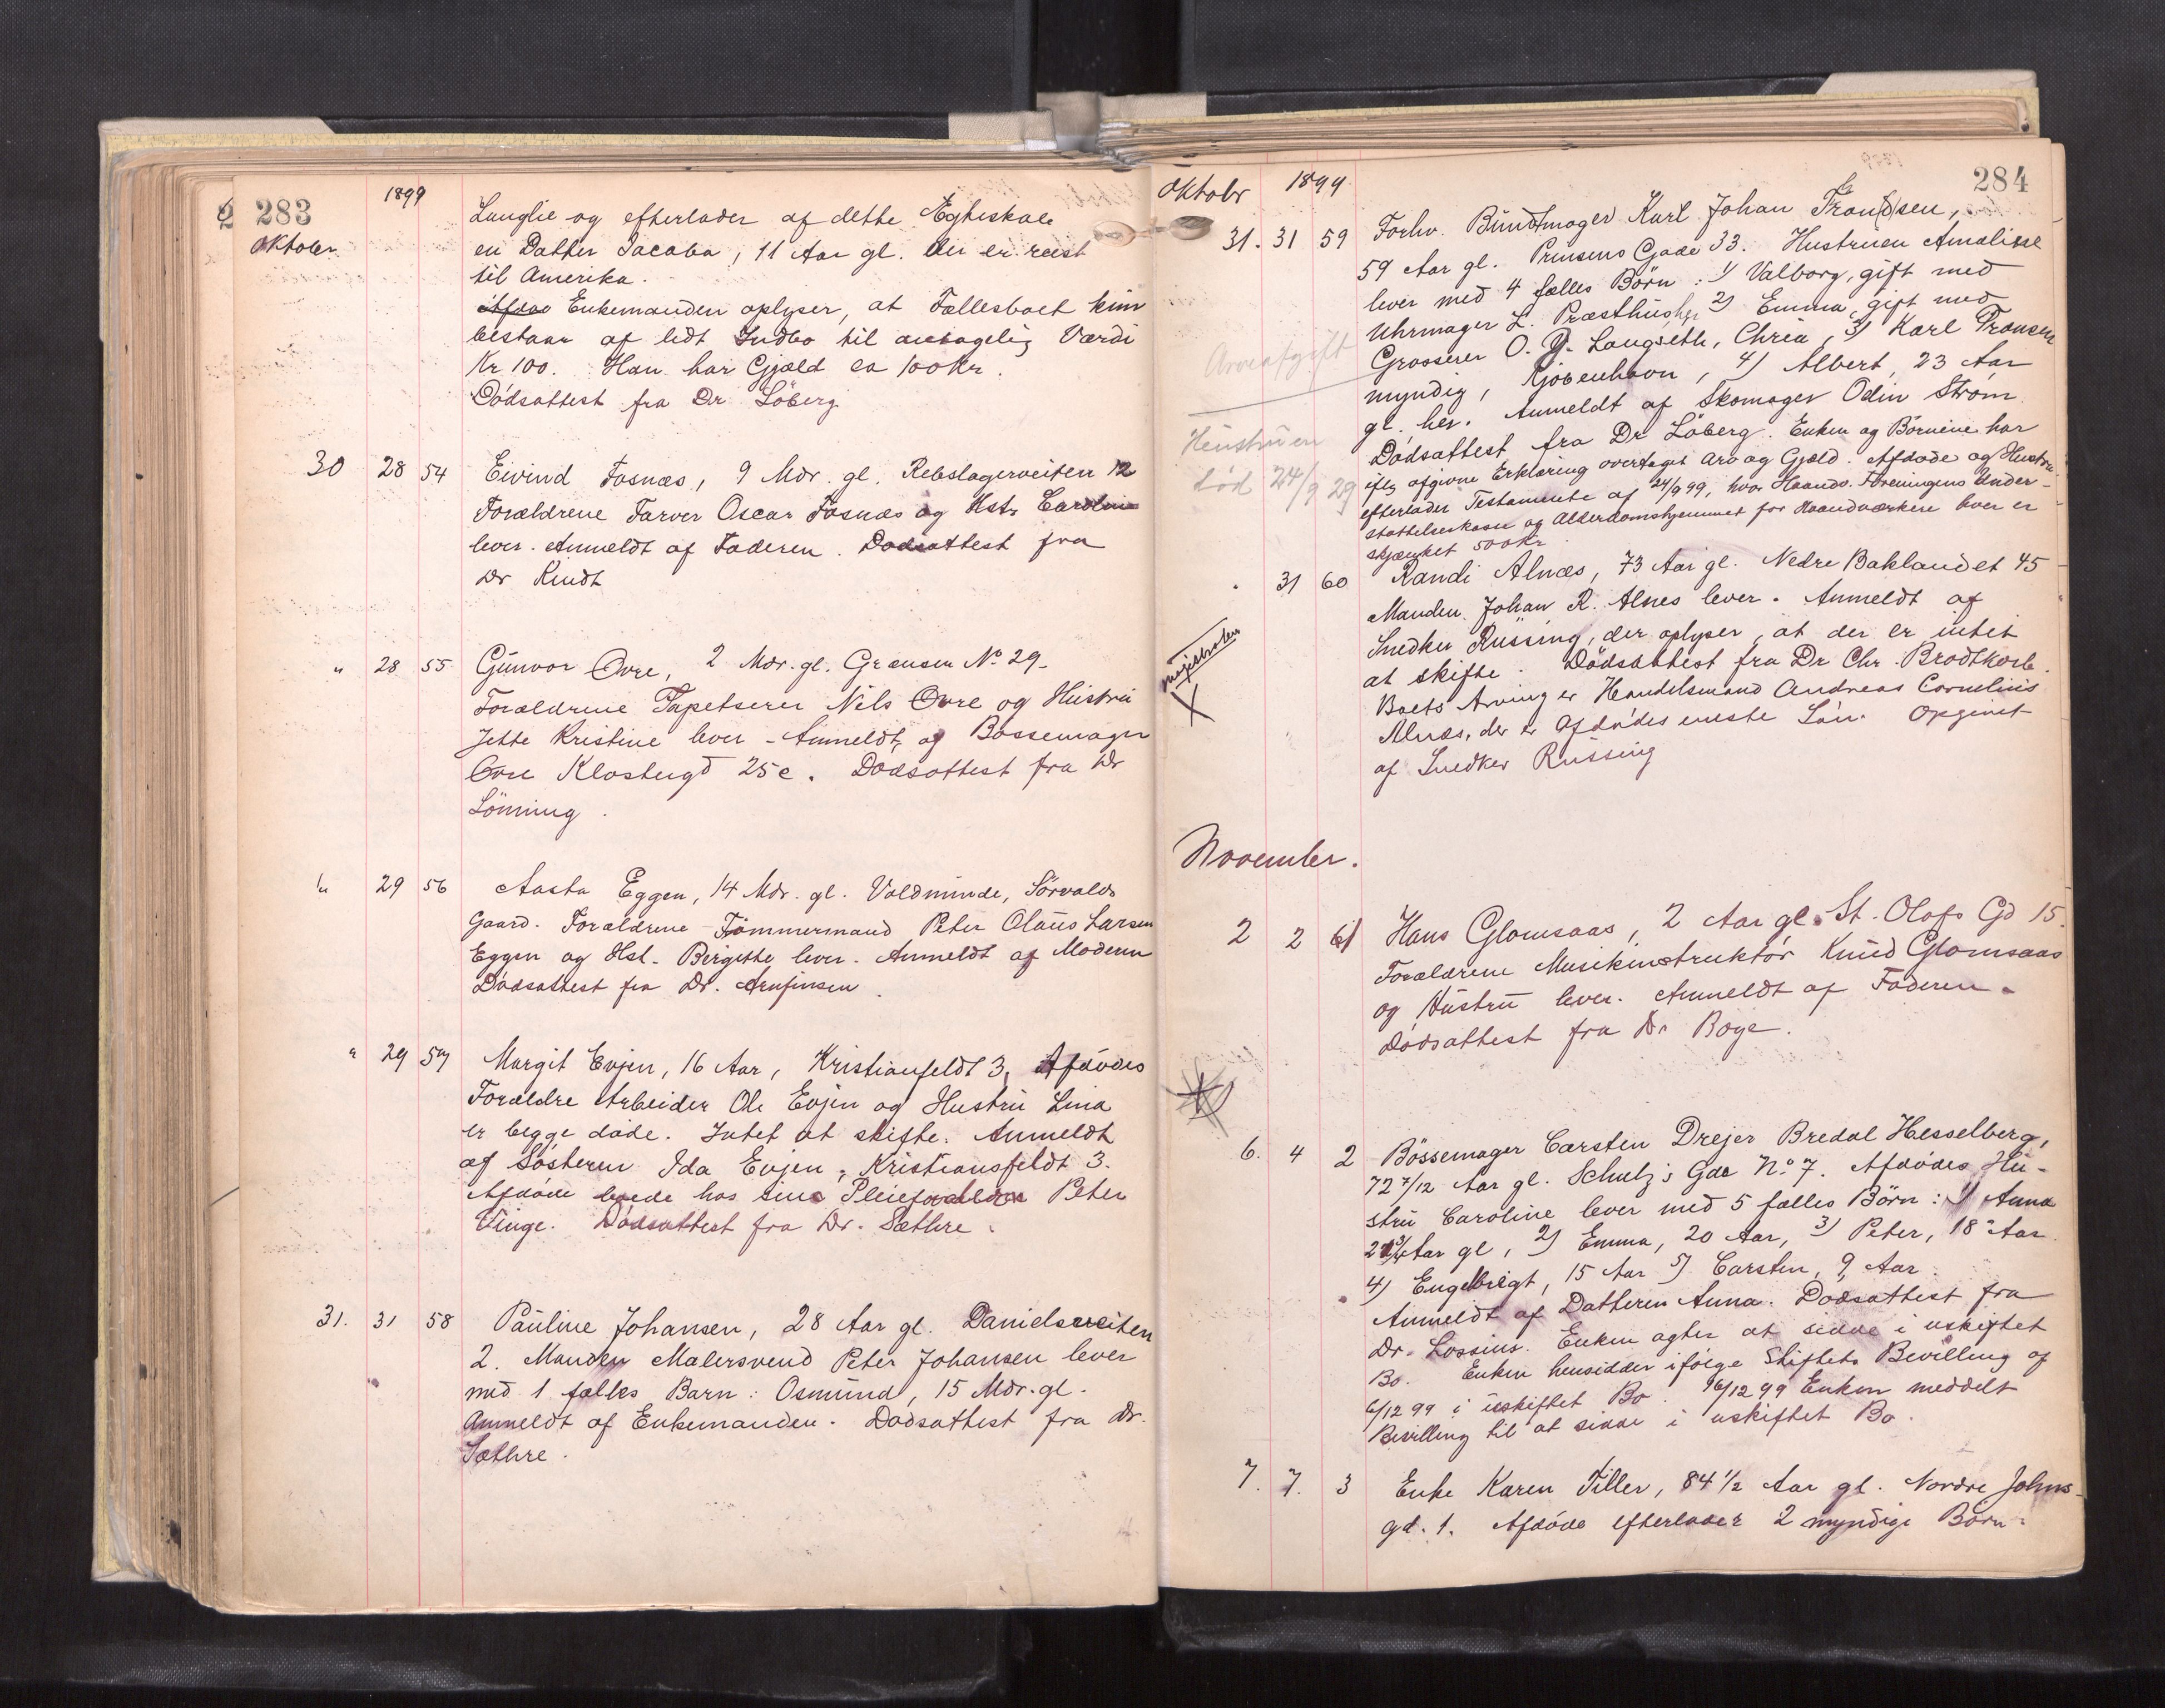 283
1899
Oktober
Langlie og efterlader af dette Egteskab
en Datter Jacoba, 11 Aar gl. der er reist
til Amerika.
Enkemanden oplyser, at Fællesboet kun
bestaar af lidt Indbo til antagelig Værdi
Kr 100. Han har Gjæld ca 100 Kr.
Dödsattest fra Dr Löberg
30 28 54 Eivind Fosnæs, 9 Mdr. gl. Rebslagerveiten 12
Forældrene Farver Oscar Fosnæs og Hstr Caroline
lever. Anmeldt af Faderen. Dødsattest fra
Dr Kindt
" 28 55 Gunvor Övre, 2 Mdr. gl. Grænsen No 29-
Forældrene Tapetserer Nils Övre og Hustru
Jette Kristine lever - Anmeldt af Bössemager
Övre Klostergd 25c. Dødsattest fra Dr
Lönning.
" 29 56 Aasta Eggen, 14 Mdr. gl. Voldminde, Sörvalds
Gaard. Forældrene Tömmermand Peter Olaus Larsen
Eggen og Hst. Birgitte lever. Anmeldt af Moderen
Dödsattest fra Dr. Arnfinsen.
" 29 57 Margit Evjen, 16 Aar, Kristiansfeldt 3. Afdödes
Forældre Arbeider Ole Evjen og Hustru Lina
er begge døde. Intet at skifte. Anmeldt
af Sösteren Ida Evjen, Kristiansfeldt 3.
Afdøde boede hos sine Pleieforældre Peter
Vinge. Dødsattest fra Dr. Sæthre.
31. 31 58 Pauline Johansen, 28 Aar gl. Danielsveiten
2. Manden Malersvend Peter Johansen lever
med 1 fælles Barn: Osmund, 15 Mdr. gl.
Anmeldt af Enkemanden. Dødsattest fra Dr.
Sæthre.
284
Oktobr 1899
31. 31 59 Forhv. Buntmager Karl Johan Fron(d)sen,
59 Aar gl. Prinsens Gade 33. Hustruen Amalisse
lever med 4 fælles Börn: 1) Valborg, gift med
Uhrmager L. Præsthus her 2) Emma, gift med
Grosserer O. J. Langseth, Chria, 3) Karl Fronsen
myndig, Kjöbenhavn, 4) Albert, 23 Aar
gl. her. Anmeldt af Skomager Odin Ström.
Dødsattest fra Dr Löberg. Enken og Börnene har
iflg afgivne Erklæring overtaget Arv og Gjæld. Afdøde og Hustru
efterlader Testamente af 24/9 99, hvor Haandv. Foreningens Under-
støttelseskasse og Alderdomshjemmet for Haandværkere hver er
skjænket 500 Kr
Arveafgift
Hustruen
død 24/9 29
" 31 60 Randi Alnæs, 73 Aar gl. Nedre Baklandet 45
Manden Johan R. Alnes lever. Anmeldt af
Snedker Russing, der oplyser, at der er intet
at skifte. Dödsattest fra Dr Chr. Brodtkorb.
Boets Arving er Handelsmand Andreas Cornelius
Alnæs, der er Afdødes eneste Sön. Opgivet
af Snedker Russing
Magistraten
X
November.
2 2 61 Hans Glomsaas, 2 Aar gl. St. Olafs Gd 15.
Forældrene Musikinstruktör Knud Glomsaas
og Hustru lever. Anmeldt af Faderen.
Dødsattest fra Dr Boye.
6. 4 2 Bössemager Carsten Drejer Bredal Hesselberg,
72 7/12 Aar gl. Schulz's Gde No 7. Afdödes Hu-
stru Caroline lever med 5 fælles Börn: 1) Anna
Aar gl, 2) Emma, 20 Aar, 3) Peter, 18 Aar
4) Engelbregt, 15 Aar 5) Carsten, 9 Aar.
Anmeldt af Datteren Anna. Dødsattest fra
Dr. Lossius. Enken agter at sidde i uskiftet
Bo. Enken hensidder ifölge Skiftets Bevilling af
6/12 99 i uskiftet Bo. 16/12 99 Enken meddelt
Bevilling til at sidde i uskiftet Bo.
7. 7. 3 Enke Karen Tiller, 84 1/2 Aar gl. Nordre Johns-
gd. 1. Afdöde efterlader 2 myndige Börn.